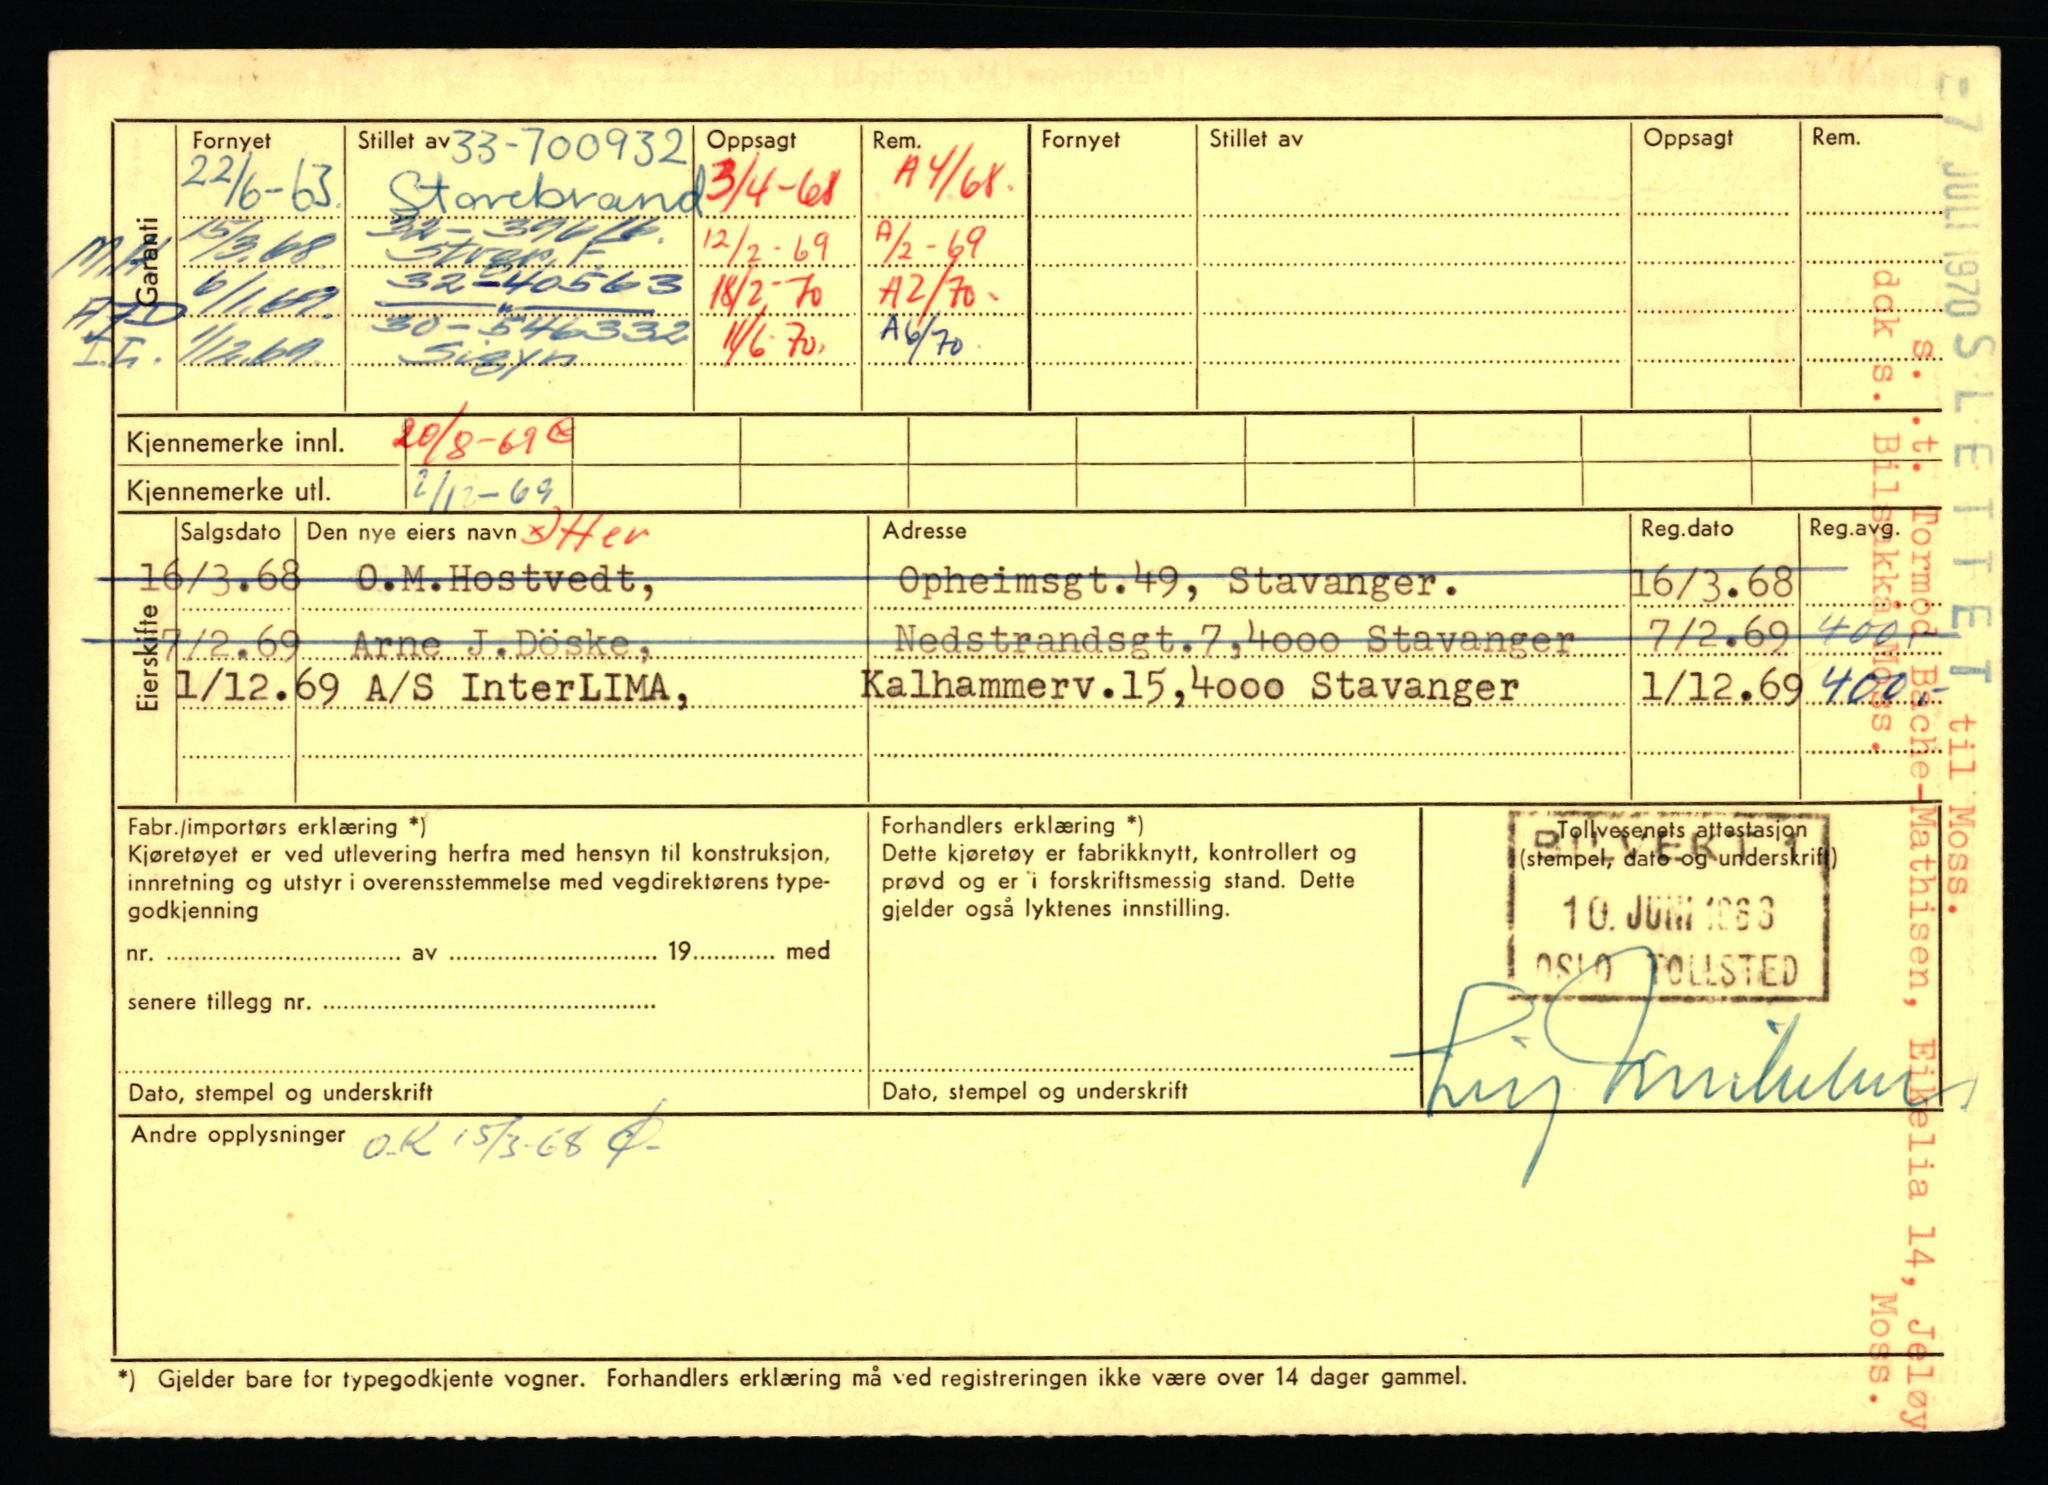 Fornyet Stillet av 33-700932 Oppsagt Rem. Fornyet Stillet av Oppsagt Rem.
22/6-63. Storebrand 3/4-68 A4/68.
Garanti
15/3.68. 12/2-69 A/2-69
6/1.69. 32-40563 18/2-70 A2/70.
30-546332
I.L. 1/12.69. Sigyn 11/6-70. A6/70
Kjennemerke innl. 20/8-69
Kjennemerke utl. 2/12-69
Eierskifte
Salgsdato Den nye eiers navn Adresse Reg.dato Reg.avg.
16/3.68 O.M.Hostvedt, Opheimsgt.49, Stavanger. 16/3.68
7/2.69 Arne J.Döske, Nedstrandsgt.7,4000 Stavanger 7/2.69 400,-
1/12.69 A/S InterLIMA, Kalhammerv.15,4000 Stavanger 1/12.69 400,-
Fabr./importørs erklæring *)
Kjøretøyet er ved utlevering herfra med hensyn til konstruksjon,
innretning og utstyr i overensstemmelse med vegdirektørens type-
godkjenning
nr. av 19 med
senere tillegg nr.
Dato, stempel og underskrift
Forhandlers erklæring *)
Dette kjøretøy er fabrikknytt, kontrollert og
prøvd og er i forskriftsmessig stand. Dette
gjelder også lyktenes innstilling.
Dato, stempel og underskrift
Tollvesenets attestasjon
(stempel, dato og underskrift)
10. JUNI 1963
OSLO TOLLSTED
Andre opplysninger O.K 15/3-68
*) Gjelder bare for typegodkjente vogner. Forhandlers erklæring må ved registreringen ikke være over 14 dager gammel.
-7 JULI 1970 SLETTET til Moss.
s. .t. Tormod Bache-Mathisen, Eikelia 14, Jeløy
dck s. Bilsakk. Moss. Moss.